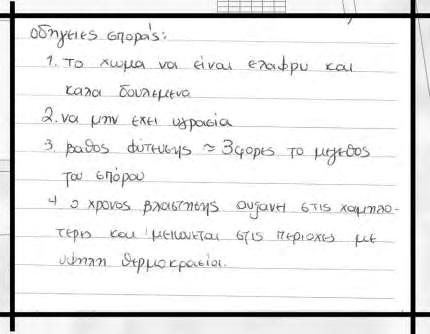 οδηγιες σποράς:
1. το χωμα να είναι ελαφρυ και
καλα δουλεμενο
2. να μην εχει υγρασία
3. βαθος φύτευσης ≈ 3 φορες το μεγεθος
του σπόρου
4 ο χρονος βλαστησης αυξανει στις χαμηλο-
τερες και μειωνεται στις περιοχες με
υψηλη θερμοκρασια.